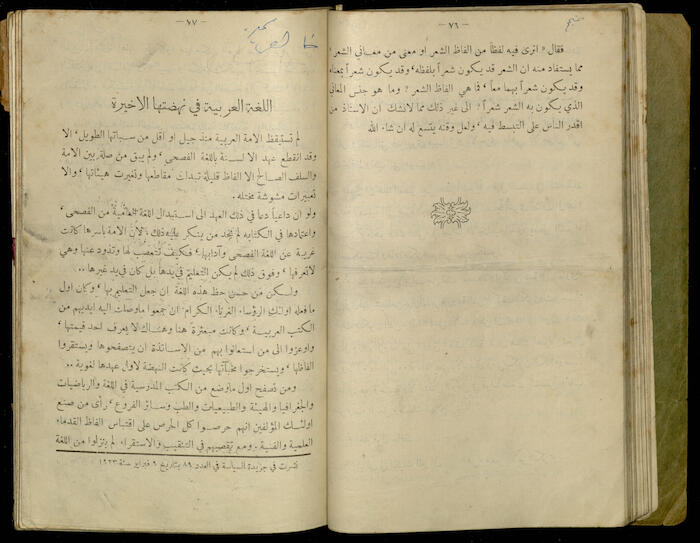 — ٧٦ —
فقال « اترى فيه لفظاً من الفاظ الشعر او معنى من معاني الشعر »
مما يستفاد منه ان الشعر قد يكون شعراً بلفظه، وقد يكون شعراً بمعناه
وقد يكون شعراً بهما معاً، فما هي الفاظ الشعر؟ وما هو جنس المعاني
الذي يكون به الشعر شعراً؟ الى غير ذلك مما لانشك ان الاستاذ من
اقدر الناس على التبسط فيه، ولعل وقته يتسع له ان شاء الله
— ٧٧ —
اللغة العربية في نهضتها الاخيرة
لم تستيقظ الامة العربية منذ جيل او اقل من سباتها الطويل، الا
وقد انقطع عهد الالسنة باللغة الفصحى، ولم يبق من صلة بين الامة
والسلف الصالح الا الفاظ قليلة تبدلت مقاطعها وتغيرت هيئاتها، والا
تعبيرات مشوشة مختلة.
ولو ان داعياً دعا في ذلك العهد الى استبدال اللغة العامية من الفصحى،
واعتمادها في الكتابه لم يجد من ينكر عليه ذلك، لأن الامة باسرها كانت
غريبة عن اللغة الفصحى وآدابها، فكيف تتعصب لها وتذود عنها وهي
لاتعرفها، وفوق ذلك لم يكن التعليم في يدها بل كان في يد غيرها..
ولكن من حسن حظ هذه اللغة ان جعل التعليم بها، وكان اول
ما فعله اولئك الرؤساء الغرباء الكرام، ان جمعوا ماوصلت اليه ايديهم من
الكتب العربية، وكانت مبعثرة هنا وهناك لا يعرف احد قيمتها،
واوعزوا الى من استعانوا بهم من الاساتذة ان يتصفحوها ويستقروا
الفاظها، ويستخرجوا مخبآتها بحيث كانت النهضة لاول عهدها لغوية..
ومن تصفح اول ماوضع من الكتب المدرسية في اللغة والرياضيات
والجغرافيا والهيئة والطبيعيات والطب وسائر الفروع، رأى من صنع
اولئك المؤلفين انهم حرصوا كل الحرص على اقتباس الفاظ القدماء
العلمية والفنية. ومع تقصيهم في التنقيب والاستقراء لم ينزلوا من اللغة
نشرت في جريدة السياسة في العدد ٨٩ بتاريخ ٩ فبراير سنة ١٩٢٣